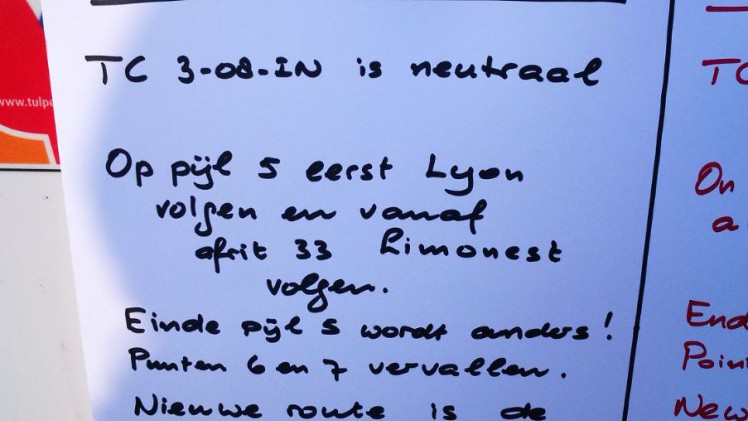 www.tulp
TC 3-08-IN is neutraal
Op pijl 5 eerst Lyon
volgen en vanaf
afrit 33 Limonest
volgen.
Einde pijl 5 wordt anders!
Punten 6 en 7 vervallen.
Nieuwe route is de
TC
On
a
End
Poin
New